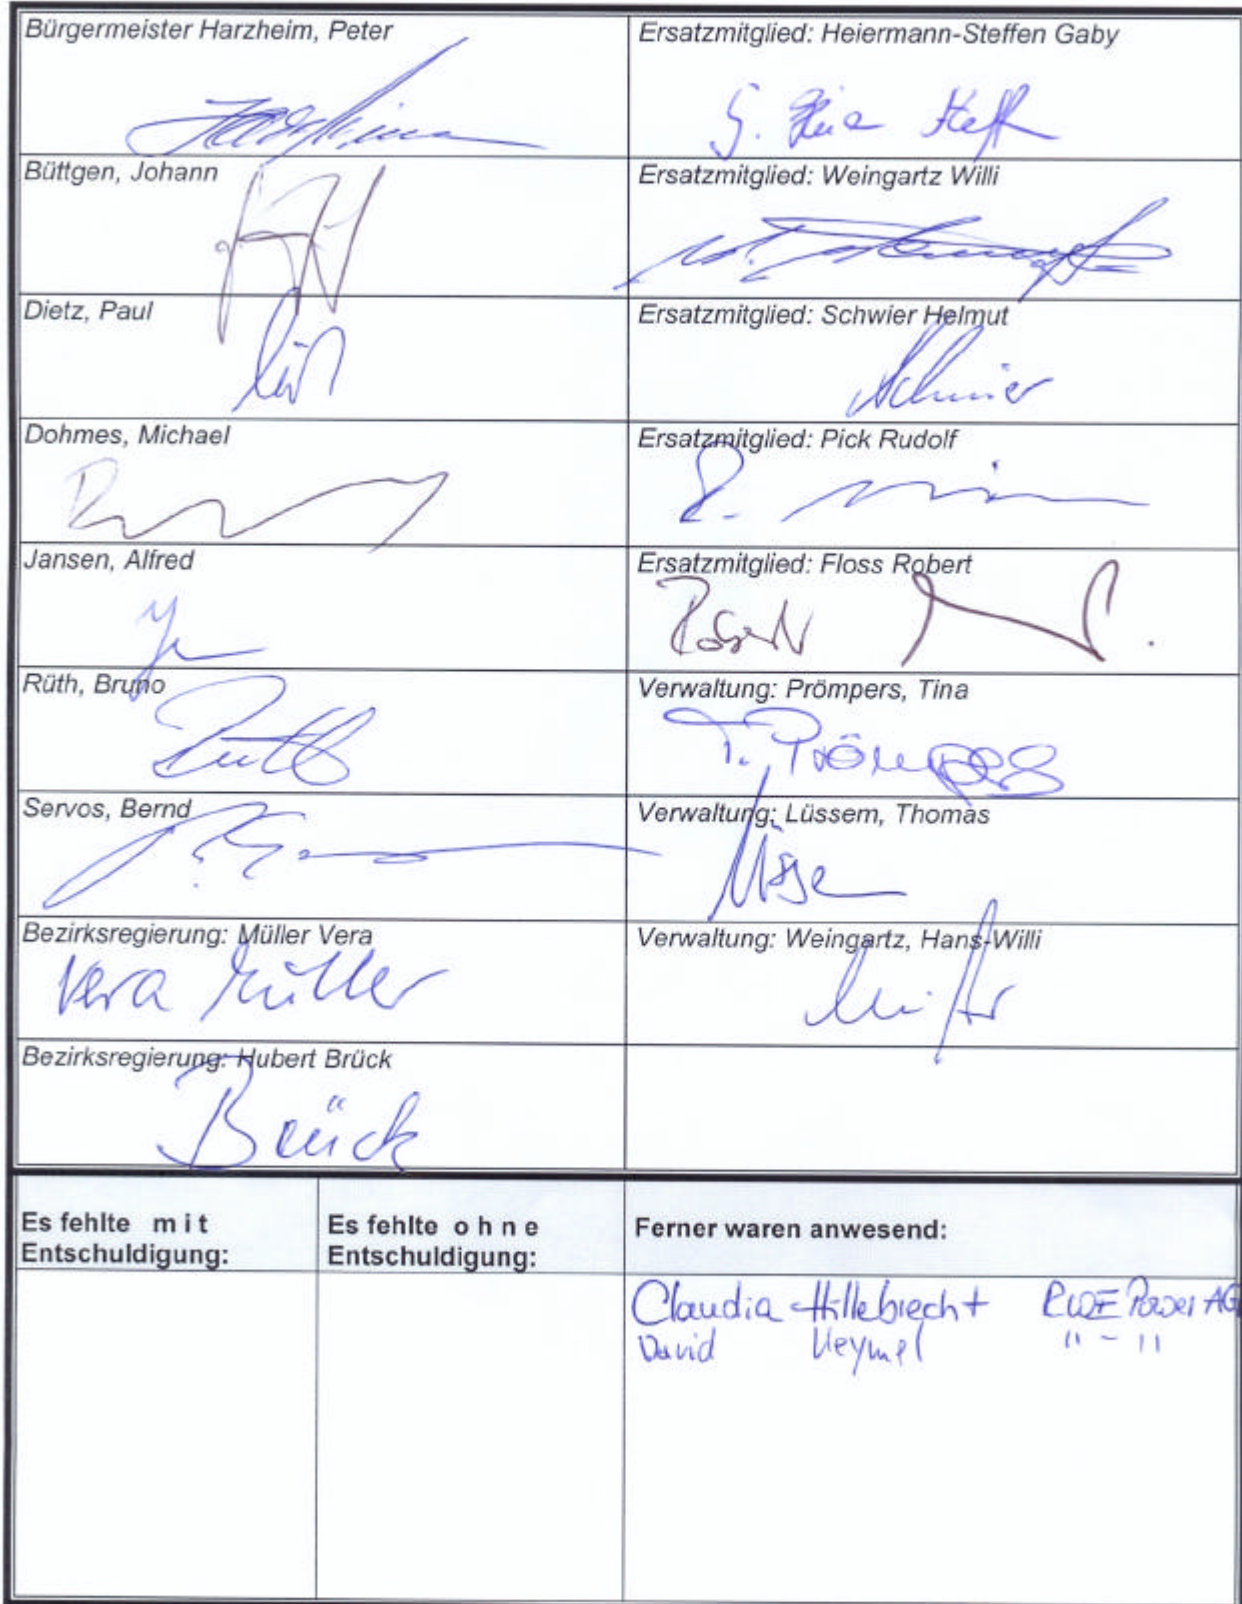 Bürgermeister Harzheim, Peter
Ersatzmitglied: Heiermann-Steffen Gaby
Büttgen, Johann
Ersatzmitglied: Weingartz Willi
Dietz, Paul
Ersatzmitglied: Schwier Helmut
Schwier
Dohmes, Michael
Ersatzmitglied: Pick Rudolf
Jansen, Alfred
Ersatzmitglied: Floss Robert
Robert
Rüth, Bruno
Verwaltung: Prömpers, Tina
T. Prömpers
Servos, Bernd
Verwaltung: Lüssem, Thomas
Bezirksregierung: Müller Vera
Vera Müller
Verwaltung: Weingartz, Hans-Willi
Bezirksregierung: Hubert Brück
Brück
Es fehlte m i t
Entschuldigung:
Es fehlte o h n e
Entschuldigung:
Ferner waren anwesend:
Claudia Hillebrecht RWE Power AG
David Heymel " - "